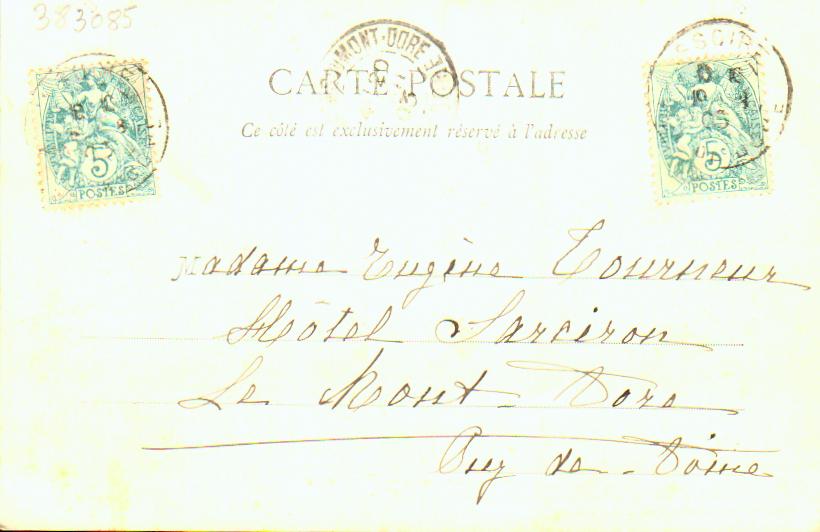 383085
MONT-DORE
CARTE POSTALE
Ce côté est exclusivement réservé à l'adresse
5
POSTES
5
POSTES
Madame Eugène Tourneur
Hôtel Sarciron
Le Mont-Dore
Puy-de-Dôme